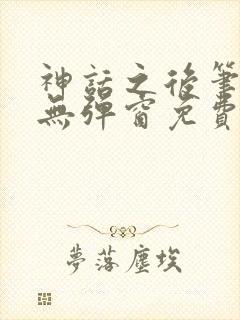 神話之後筆
無彈窗免費
夢落塵埃